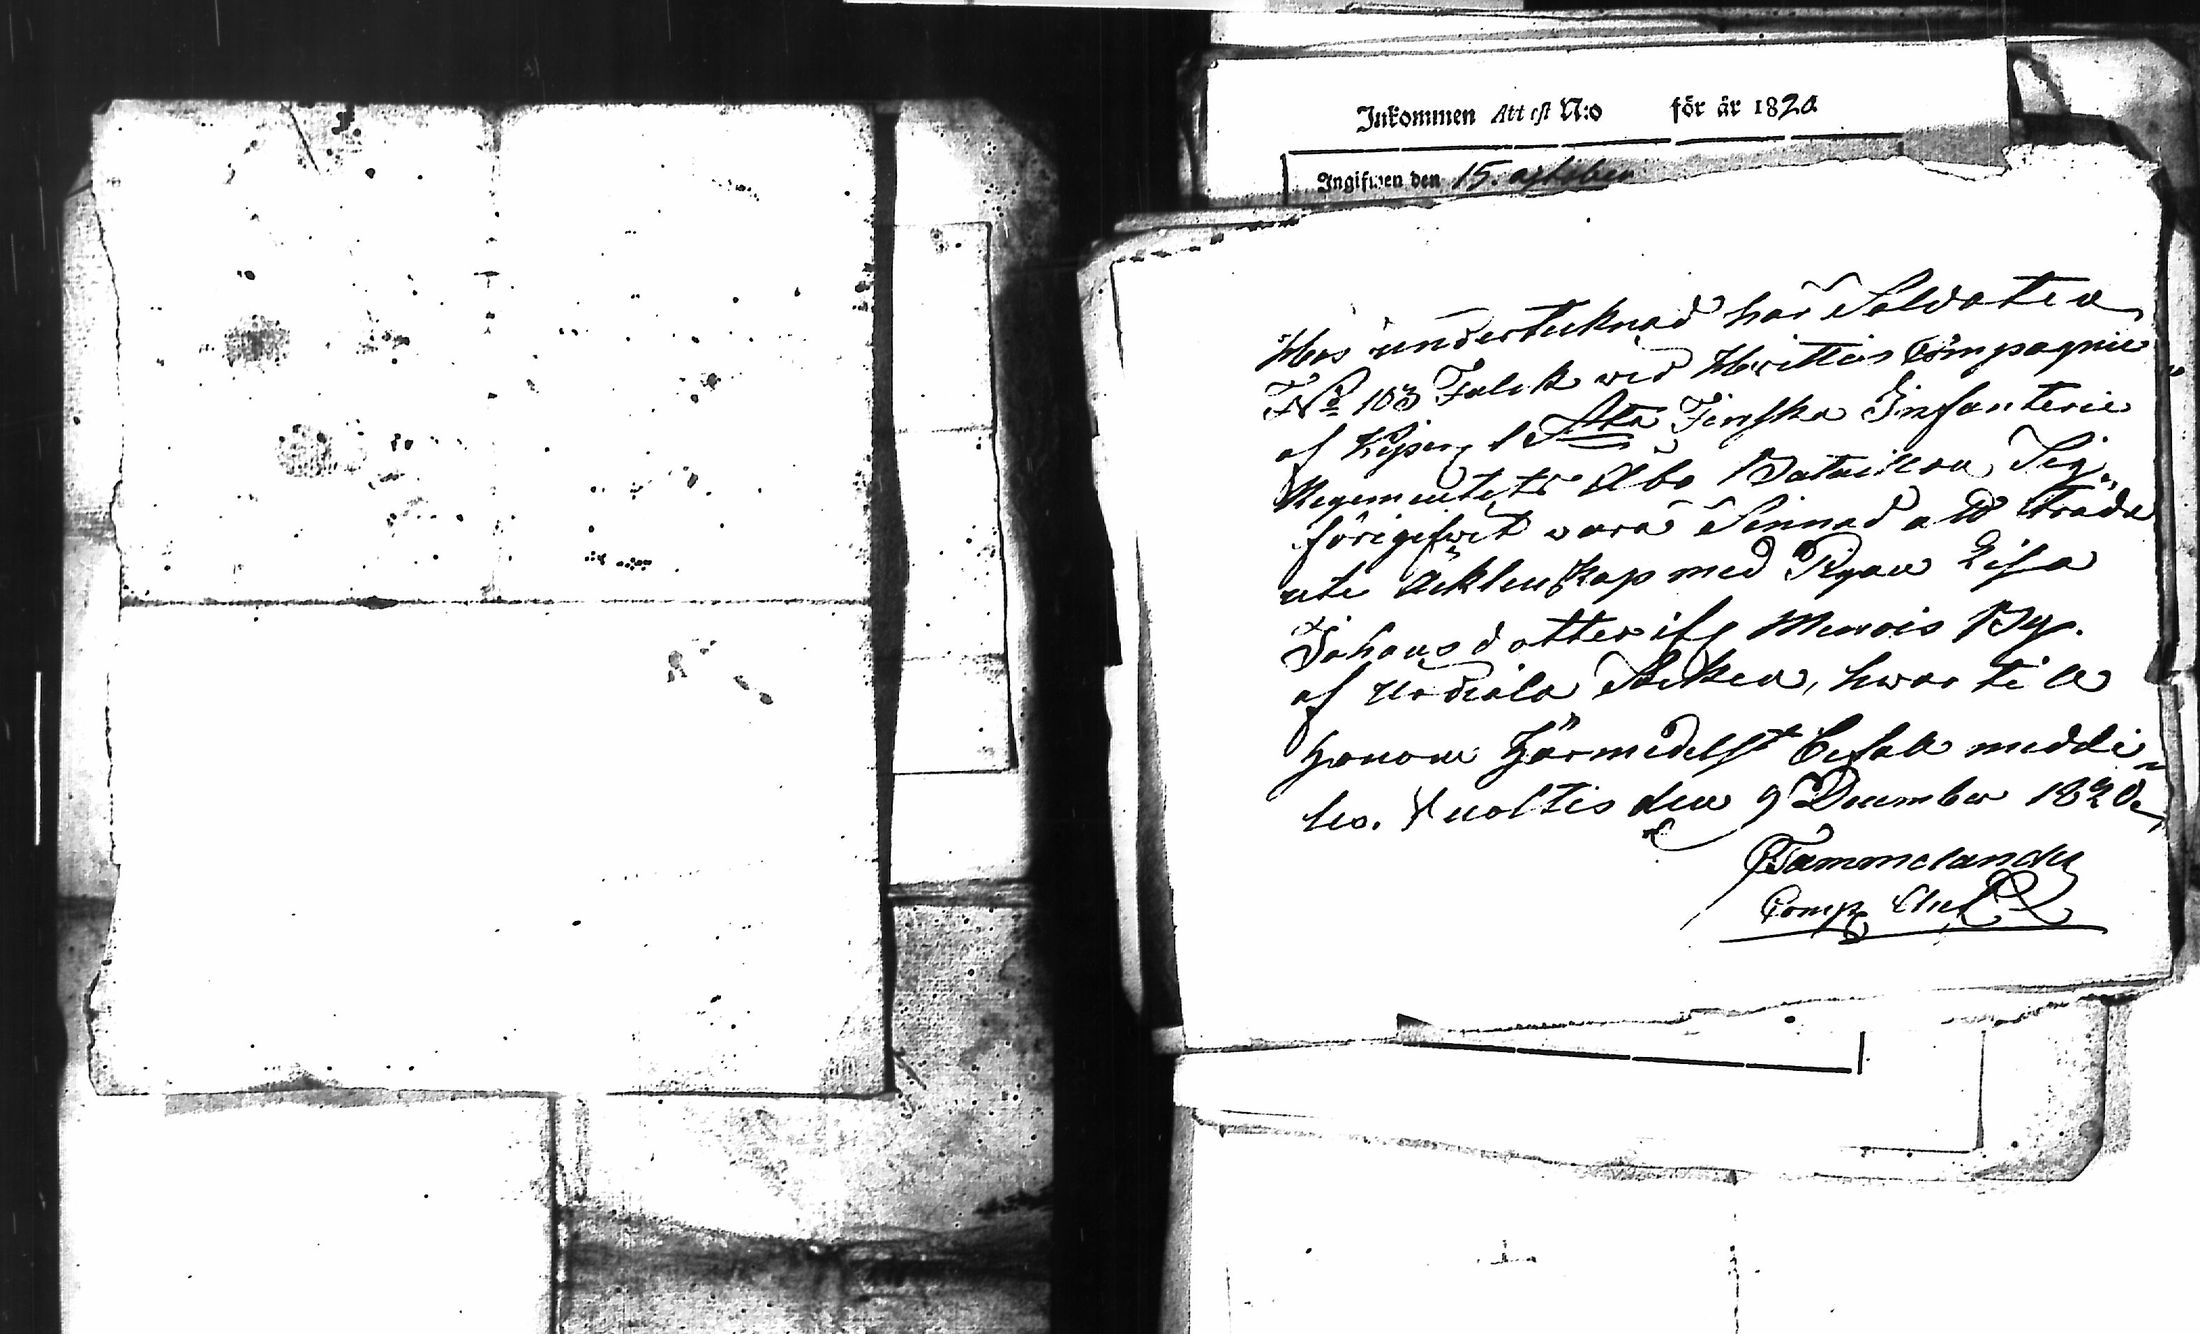 Inkommen Attest N:o för år 1820
Ingifwen den 15. october
Hos undertecknad har Soldaten
No 103 Falck wid Hvittis Compagnie
af Kejserl 1sta Finska Infanterie
Regementets Åbo Bataillon, Sig
förigifwit wara Sinnad att träda
uti Ächtenskap med Pigan Lisa
Johansdotter ifr Menois By.
af Urdiala Socken, hwartill
honom Härmedelst Tefall meddi-
les. Kuoltis den 9 December 1820.
Tammelander
Comp Chef